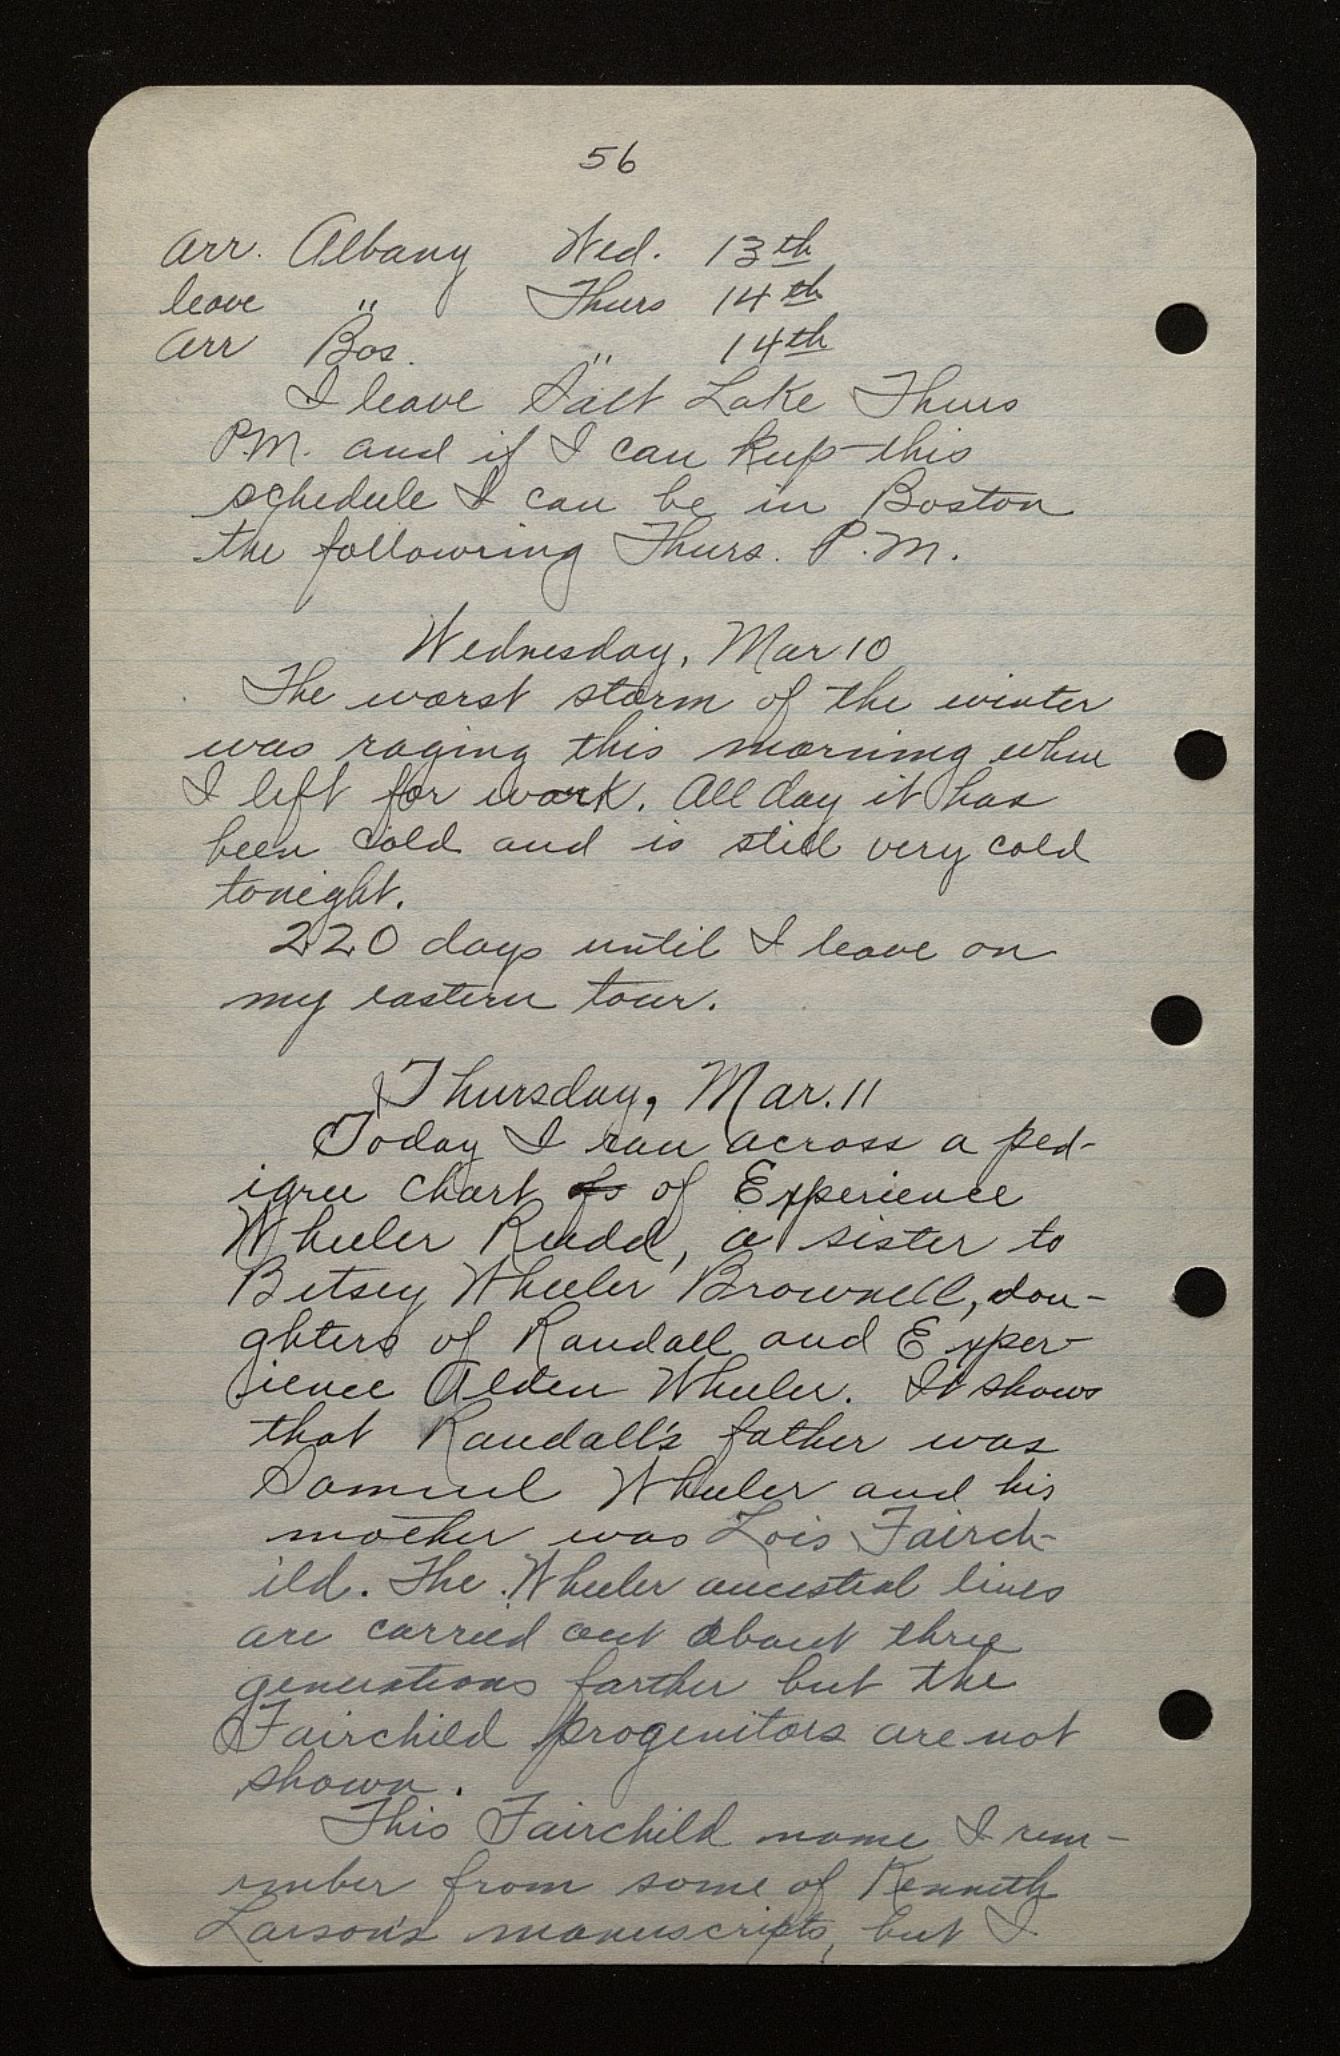 56
Arr. Albany Wed. 13th
leave " Thurs 14th
Arr Bos. " 14th
I leave Salt Lake Thurs
P.M. and if I can keep this
schedule I can be in Boston
the following Thurs. P.M.
Wednesday, Mar 10
The worst storm of the winter
was raging this morning when
I left for work. All day it has
been cold and is still very cold
tonight.
220 days until I leave on
my eastern tour.
Thursday, Mar. 11
Today I ran across a ped-
igree chart of of Experience
Wheeler Rudd, a sister to
Betsey Wheeler Brownell, dau-
ghters of Randall and Exper-
ience Alden Wheeler. It shows
that Randall's father was
Samuel Wheeler and his
mother was Lois Fairch-
ild. The Wheeler ancestral lines
are carried out about three
generations farther but the
Fairchild progenitors are not
shown.
This Fairchild name I rem-
ember from some of Kenneth
Larson's manuscripts, but I